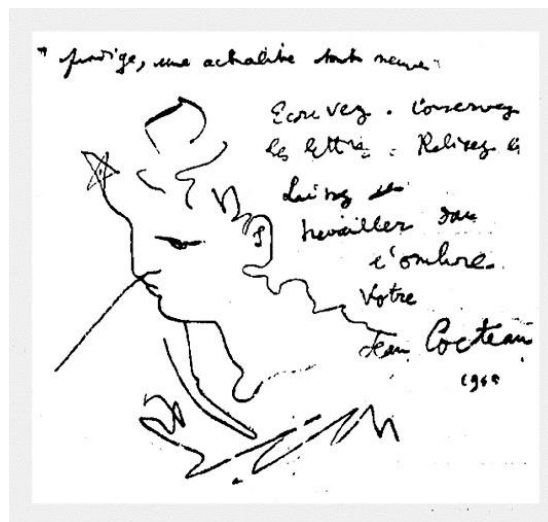 " prodige, une actualité toute neuve "
Ecrivez. Conservez
les lettres. Relisez les
Laissez les
travailler dans
l'ombre.
Votre
Jean Cocteau